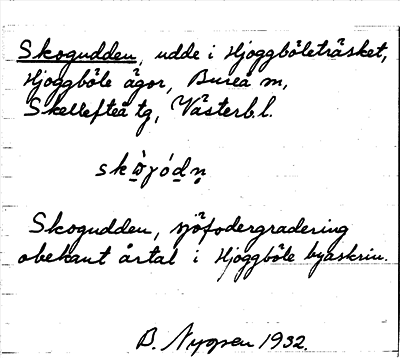 Skogudden, udde i Hjoggböleträsket,
Hjoggböle ägor, Bureå sn,
Skellefteå tg, Västerb.l.
Skogudden, sjöfodergradering
obekant årtal i Hjoggböle byaskrin.
B. Nygren 1932